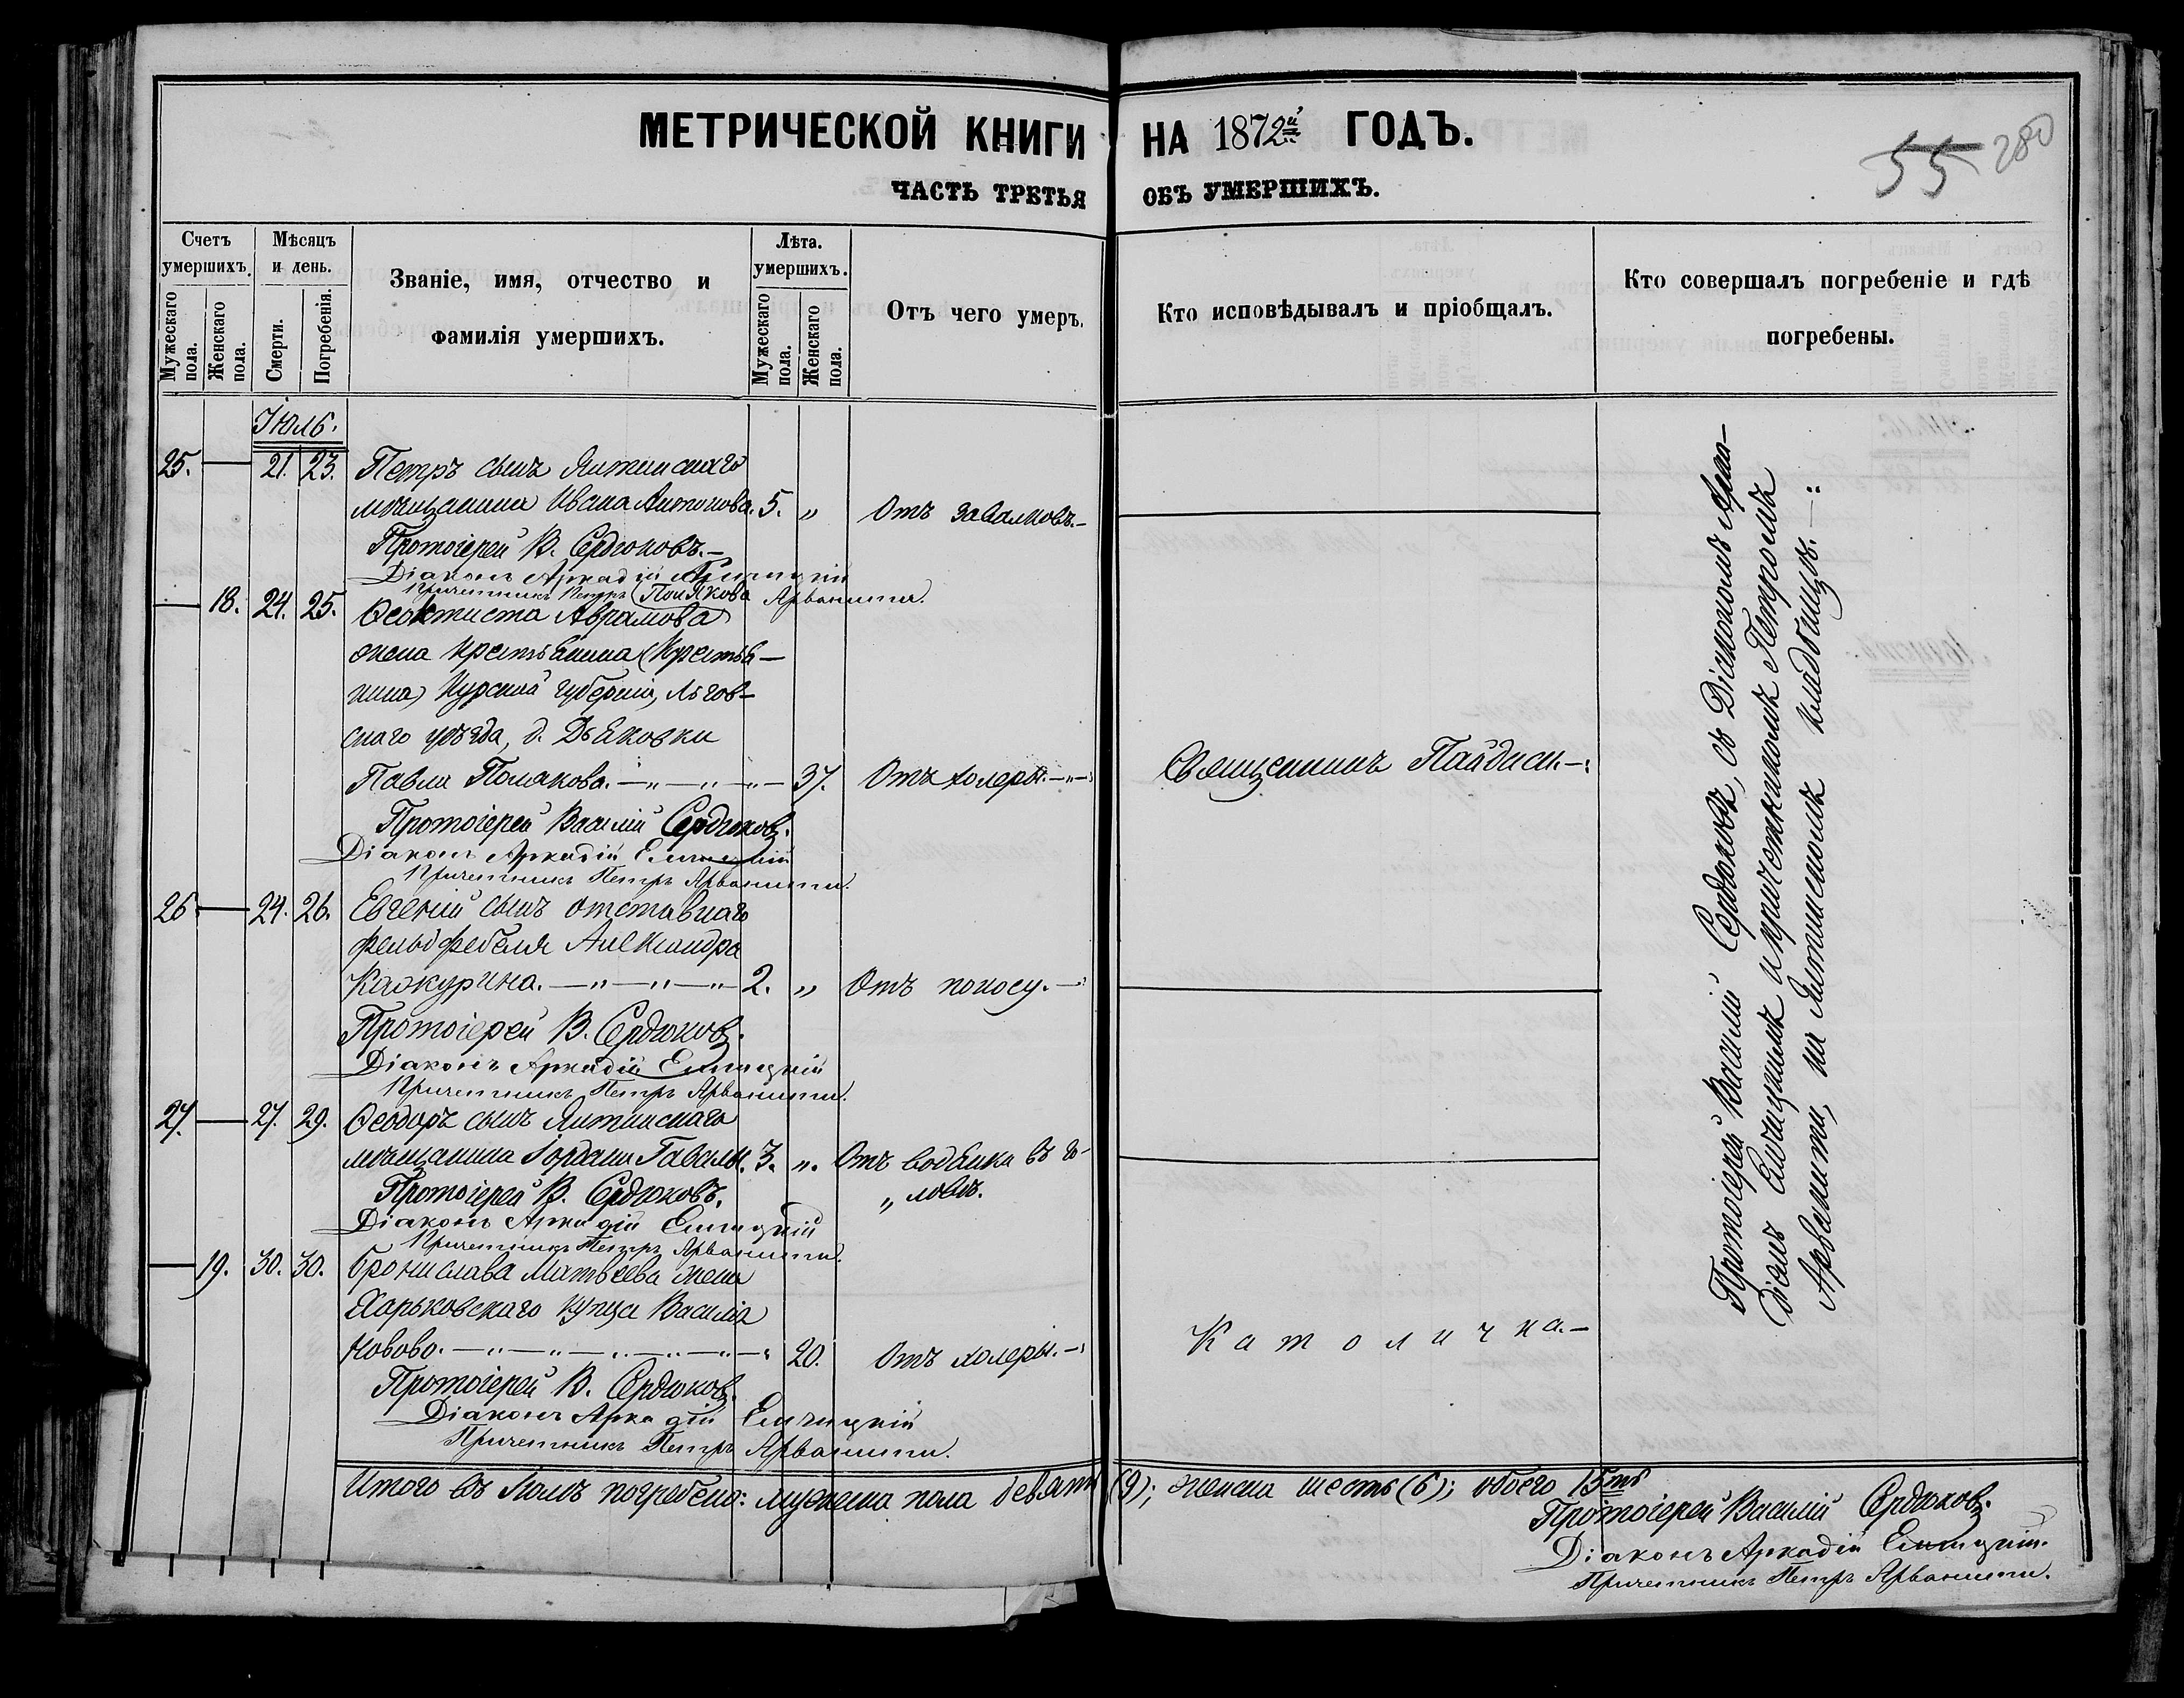 МЕТРИЧЕСКОЙ КНИГИ НА 1872й ГОДЪ.
55 280
ЧАСТЬ ТРЕТЬЯ ОБЪ УМЕРШИХЪ.
Счетъ умершихъ.
Мужескаго пола.
Женскаго пола.
Мѣсяцъ и день.
Смерти.
Погребенія.
Званіе, имя, отчество и
фамилія умершихъ.
Лѣта. умершихъ.
Мужескаго пола.
Женскаго пола.
Отъ чего умеръ.
Кто исповѣдывалъ и пріобщалъ.
Кто совершалъ погребеніе и гдѣ
погребены.
Іюль.
25. — 21. 23. Петръ сынъ Ялтинскаго
мѣщанина Ивана Антонова. 5. „ Отъ завалковъ.—
Протоіерей В. Сердюковъ.—
Діаконъ Аркадій
Причетникъ Петръ Арванити.
(Полякова
— 18. 24. 25. Ѳеоктиста Аврамова)
жена крестьянина (Крестья—
нина) Курской губерніи, Льгов—
скаго уѣзда, д. Дьяковки
Павла Полякова. —„—„—„— 37. Отъ холеры.—„— Священникъ —:
Протоіерей Василій Сердюковъ.
Діаконъ Аркадій Елчицкій
Причетникъ Петръ Арванити.
26. — 24. 26. Евгеній сынъ отставнаго
фельдфебеля Александра
Кашкурина. —„—„—„ 2. „ Отъ поносу.—:
Протоіерей В. Сердюковъ.
Діаконъ Аркадій Елчицкій
Причетникъ Петръ Арванити.
27. — 27. 29. Ѳеодоръ сынъ Ялтинскаго
мѣщанина Іордана Гавалы. 3. „. Отъ водянки въ го-
„ ловѣ.
Протоіерей В. Сердюковъ.
Діаконъ Аркадій Елчицкій
Причетникъ Петръ Арванити.
— 19. 30. 30. Брониславa Матвѣева жена
Харьковскаго купца Василія
Новово. —„—„—„—„—„— 20. Отъ холеры.—: Католичка.—
Протоіерей В. Сердюковъ.
Діаконъ Аркадій Елчицкій
Причетникъ Петръ Арванити.
Протоіерей Василій Сердюковъ, съ Діакономъ Арка—
діемъ Елчицкимъ и причетникомъ Петромъ
Арванити, на Ялтинскомъ кладбищѣ.—„
Итого въ Іюлѣ погребено: мужеска пола девять (9); женска шесть (6); обоего 15ть
Протоіерей Василій Сердюковъ.
Діаконъ Аркадій Елчицкій.
Причетникъ Петръ Арванити.